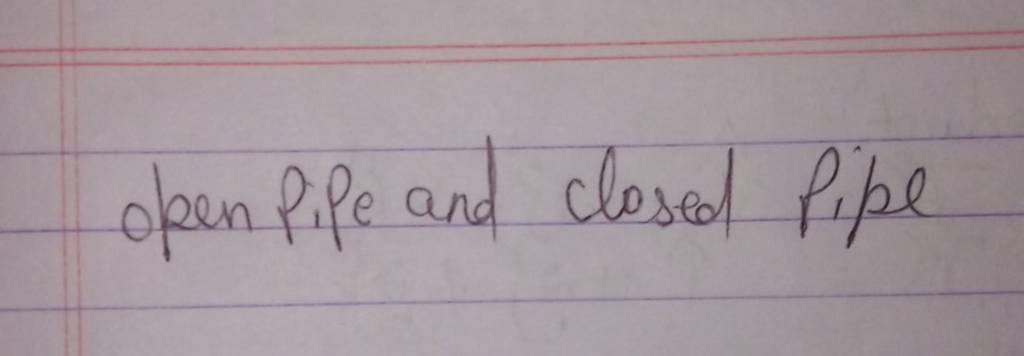 open Pipe and closed Pipe